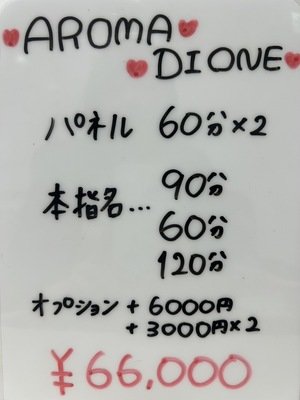 AROMA
DIONE
パネル 60分×2
本指名... 90分
60分
120分
オプション + 6000円
+ 3000円×2
¥66,000